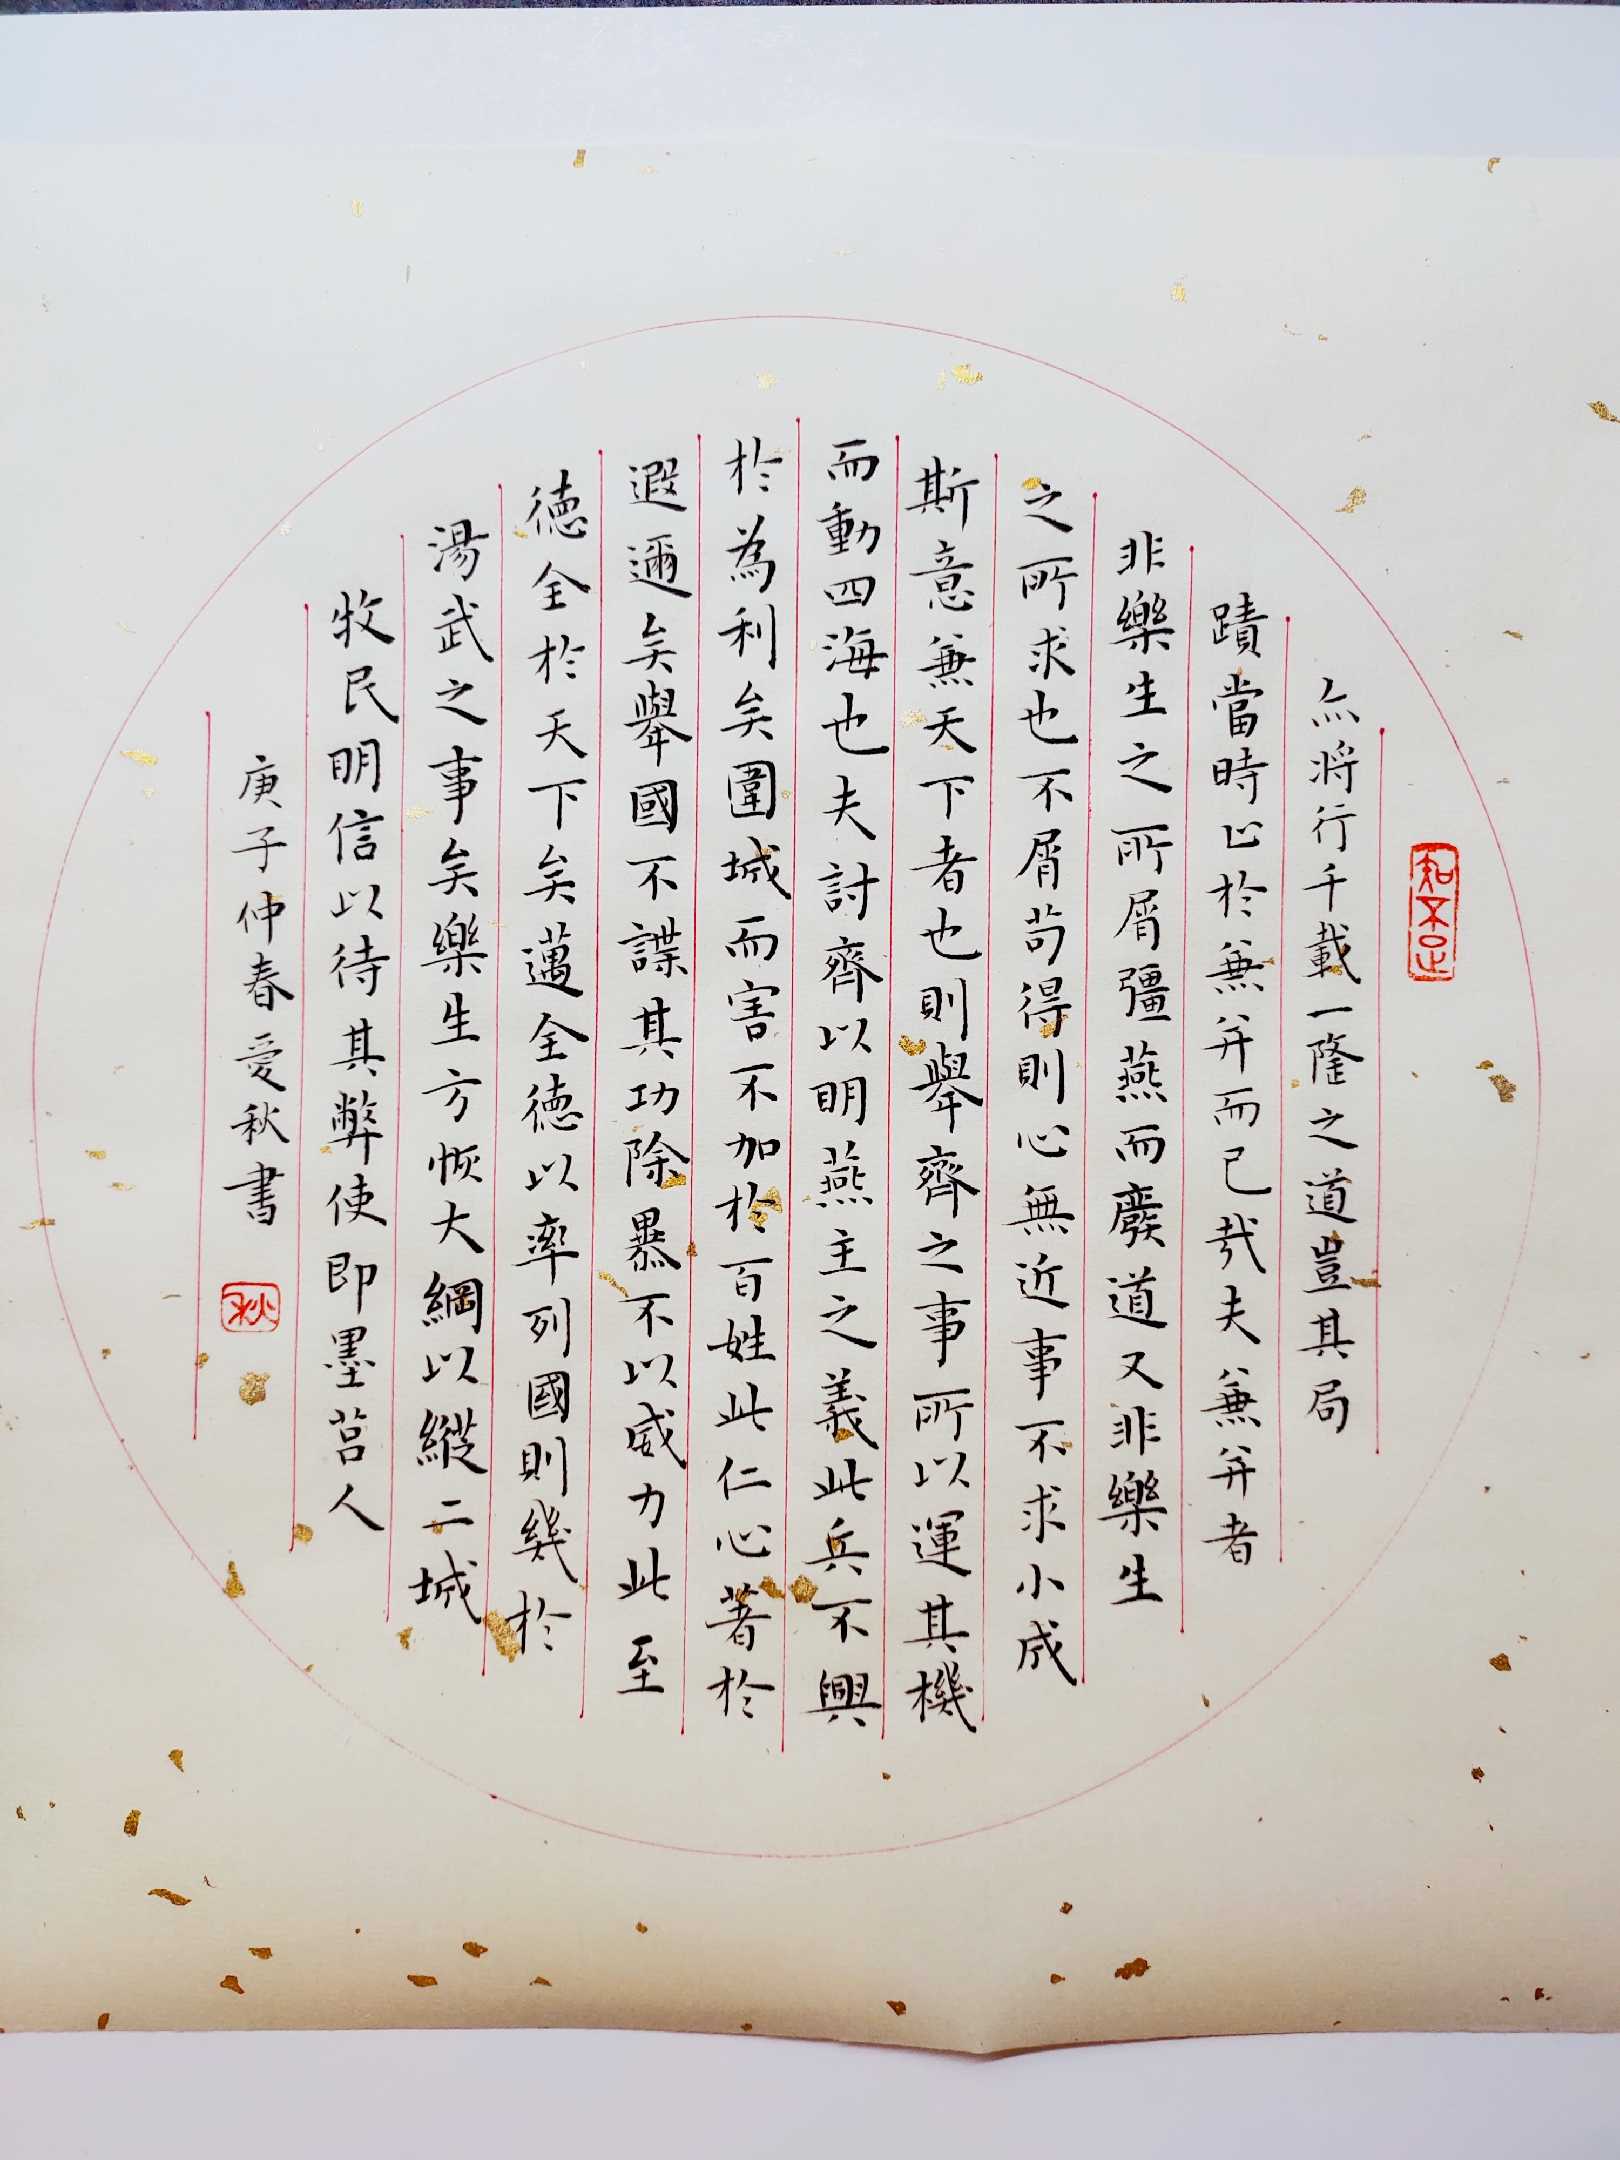 知不足
亦将行千載一隆之道豈其局
蹟當時止於兼并而已哉夫兼并者
非樂生之所屑彊燕而廢道又非樂生
之所求也不屑苟得則心無近事不求小成
斯意兼天下者也則舉齊之事所以運其機
而動四海也夫討齊以明燕主之義此兵不興
於為利矣圍城而害不加於百姓此仁心著於
遐邇矣舉國不謀其功除暴不以威力此至
德全於天下矣邁全德以率列國則幾於
湯武之事矣樂生方恢大綱以縱二城
牧民明信以待其弊使即墨莒人
庚子仲春爱秋書
秋